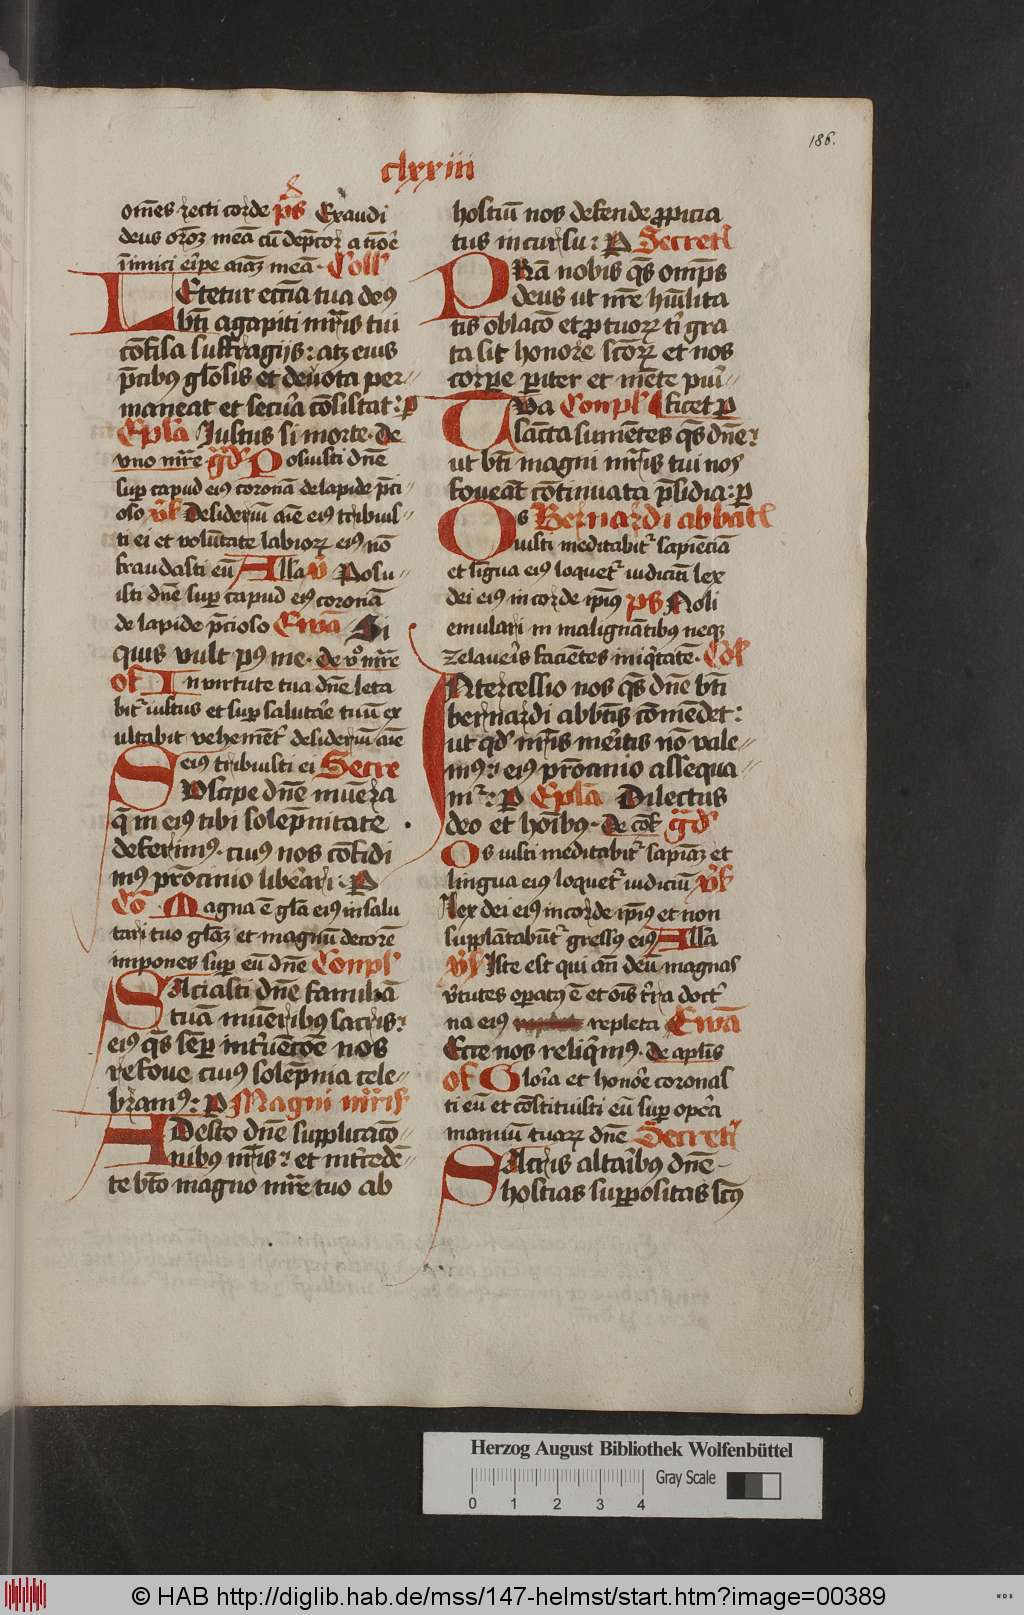 186.
clxxiii
om̄es recti corde p̄s Exaudi
deus or̄oꝫ meā cū dep̄cor a tīōr̄e
inimici eripe aīaꝫ meā. Coll̄
LEtetur ecc̄ia tua deꝰ
bt̄i agapiti mr̄is tui
cōfisa suffragijs: atꝫ eius
p̄cibꝰ gl̄osis et deuota per-
maneat et secura cōsistat: p
Epl̄a Justus si morte. de
vno mr̄e gd̄ Posuisti dn̄e
sup capud eiꝰ coronā de lapide p̄ci-
oso v̄ꝭ Desideriū aīe eiꝰ tribuis-
ti ei et volūtate labioꝝ eiꝰ nō
fraudasti eū Alla v̄ Posu-
isti dn̄e sup capud eiꝰ coronā
de lapide p̄cioso Ewā Si
quis vult pꝰ me. de vo mr̄e
Of In virtute tua dn̄e leta
bit̄ iustus et sup salutare tuū ex
ultabit vehemēt̄ desideriū aīe
eiꝰ tribuisti ei Secre
SVscipe dn̄e munera
q̄ in eiꝰ tibi solep̄nitate
deferimꝰ. cuiꝰ nos cōfidi
mꝰ pr̄ocinio liberari: P
Cō Magna ē gl̄a eiꝰ in salu
tari tuo gl̄aꝫ et magnū decorē
impones sup eū dn̄e Conpl̄
SAciasti dn̄e familiā
tuā muneribꝰ sacris:
eiꝰ qs̄ semp int̄uētōe nos
refoue cuiꝰ solep̄nia cele-
bramꝰ: P Magni mr̄is
ADesto dn̄e supplicacō-
nibus nr̄is: et int̄cedē-
te bt̄o magno mr̄e tuo ab
hostiū nos defende ꝓpicia
tus incursu: P Secret̄
PRā nobis qs̄ omp̄s
deus ut nr̄e hūīlita
tis oblacō et ꝓ tuoꝝ tī gra
ta sit honore sc̄oꝝ et nos
corpe pariter et mēte puri-
Tua Conpl̄ ficet p
sācta sumētes qs̄ dn̄e:
ut bt̄i magni mr̄is tui nos
foueāt cōtinuata p̄sidia: p
Bernardi abbat̄
Os iusti meditabit̄ sapiēciā
et lingua eiꝰ loquet̄ iudiciū lex
dei eiꝰ in corde ip̄iꝰ ps Noli
emulari in malignātibꝰ neqꝫ
zelaueris faciētes iniqtatē. Col̄
INtercessio nos qs̄ dn̄e bt̄i
bernardi abbt̄is cōmēdet:
ut qd̄ nr̄is meritis nō vale-
mꝰ: eiꝰ pr̄ocinio assequa-
mr̄: P Epl̄a Dilectus
deo et hōībꝰ. de cōf gd̄
Os iusti meditabit̄ sapiāꝫ et
lingua eiꝰ loquet̄ iudiciū v̄ꝭ
Lex dei eiꝰ in corde ip̄iꝰ et non
supplātabūt̄ gressꝰ eiꝰ Alla
v̄ꝭ Iste est qui an̄ deū magnas
v̄tutes operatꝰ ē et oīs t̄ra doct̄
na eiꝰ repleta Ewā
Ecce nos reliqimꝰ. de apl̄is
Of Gloria et honore coronas
ti eū et cōstituisti eū sup opera
manuū tuaꝝ dn̄e Secret̄
SAcris altaribus dn̄e-
hostias suppositas sc̄ꝰ
Herzog August Bibliothek Wolfenbüttel
Gray Scale
0 1 2 3 4
© HAB http://diglib.hab.de/mss/147-helmst/start.htm?image=00389
WDB